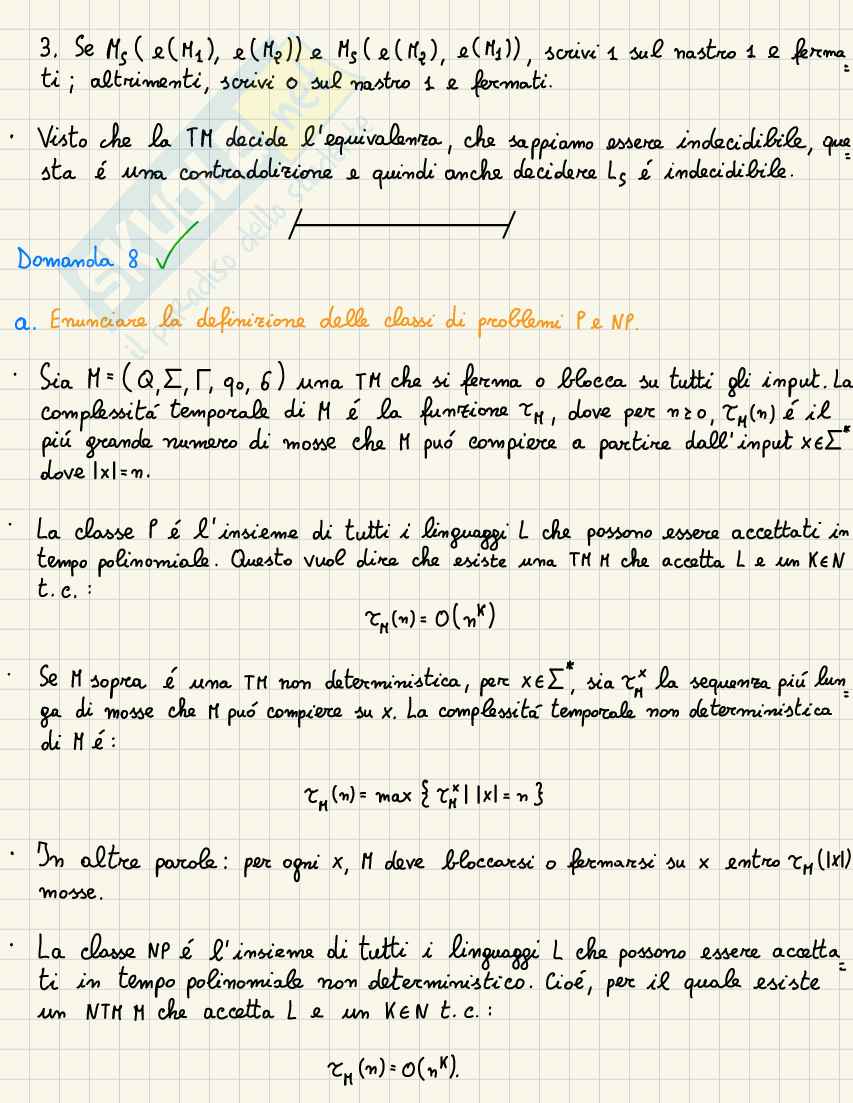 3. Se M_S( e(M_1), e(M_2)) e M_S( e(M_2), e(M_1)), scrivi 1 sul nastro 1 e ferma=
ti; altrimenti, scrivi 0 sul nastro 1 e fermati.
· Visto che la TM decide l'equivalenza, che sappiamo essere indecidibile, que=
sta é una contraddizione e quindi anche decidere L_S é indecidibile.
SKUOLA.net
il paradiso dello studente
Domanda 8 ✓
a. Enunciare la definizione delle classi di problemi P e NP.
· Sia M=(Q,Σ,Γ,q0,δ) una TM che si ferma o blocca su tutti gli input. La
complessitá temporale di M é la funzione τ_M, dove per n≥0, τ_M(n) é il
piú grande numero di mosse che M puó compiere a partire dall'input x∈Σ*
dove |x|=n.
· La classe P é l'insieme di tutti i linguaggi L che possono essere accettati in
tempo polinomiale. Questo vuol dire che esiste una TM M che accetta L e un K∈N
t.c.:
τ_M(n)=O(n^K)
· Se M sopra é una TM non deterministica, per x∈Σ*, sia τ_M^x la sequenza piú lun=
ga di mosse che M puó compiere su x. La complessitá temporale non deterministica
di M é:
τ_M(n)= max { τ_M^x | |x|=n }
· In altre parole: per ogni x, M deve bloccarsi o fermarsi su x entro τ_M(|x|)
mosse.
· La classe NP é l'insieme di tutti i linguaggi L che possono essere accetta=
ti in tempo polinomiale non deterministico. Cioé, per il quale esiste
un NTM M che accetta L e un K∈N t.c.:
τ_M(n)=O(n^K).